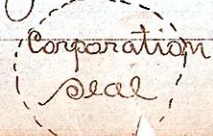 Corporation
seal